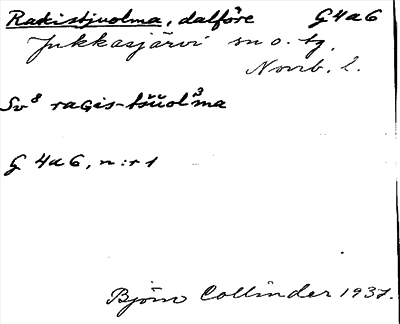 Rakistjuolma, dalföre G4a6
Jukkasjärvi sn o. tg,
Norrb. l.
Sv⁸ raGis-tšŭol³ma
G 4a6, n:r 1
Björn Collinder 1937.